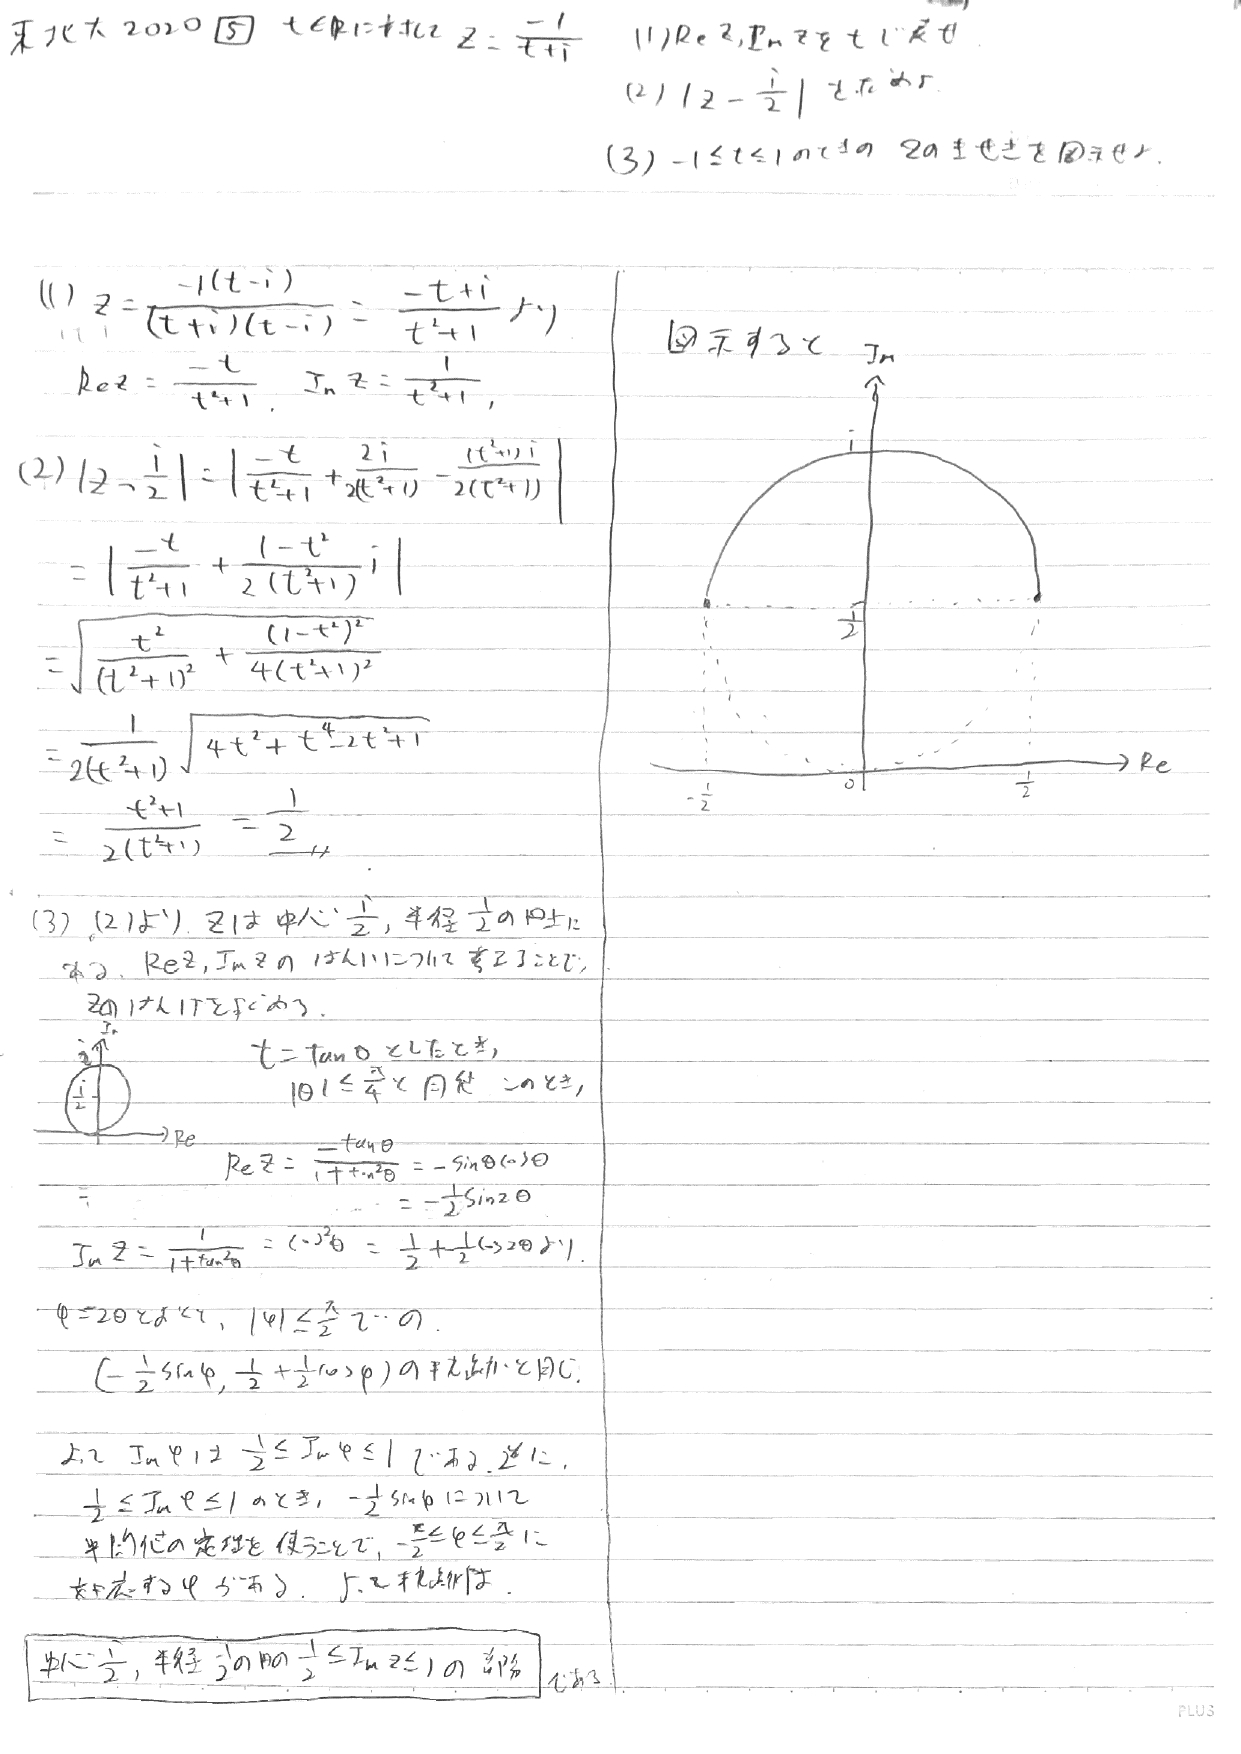 東北大 2020 [5] t∈Rに対して z = \frac{-1}{t+i} (1) Re z, Im z を t で表せ.
(2) |z - \frac{i}{2}| を求めよ.
(3) -1≤t≤1 のときの zのきせきを図示せよ.
(1) z = \frac{-1(t-i)}{(t+i)(t-i)} = \frac{-t+i}{t^2+1} より
Re z = \frac{-t}{t^2+1}, Im z = \frac{1}{t^2+1},
(2) |z - \frac{i}{2}| = |\frac{-t}{t^2+1} + \frac{2i}{2(t^2+1)} - \frac{(t^2+1)i}{2(t^2+1)}|
= |\frac{-t}{t^2+1} + \frac{1-t^2}{2(t^2+1)} i|
= \sqrt{\frac{t^2}{(t^2+1)^2} + \frac{(1-t^2)^2}{4(t^2+1)^2}}
= \frac{1}{2(t^2+1)} \sqrt{4t^2+t^4-2t^2+1}
= \frac{t^2+1}{2(t^2+1)} = \frac{1}{2}
(3) (2)より zは中心 \frac{i}{2}, 半径 \frac{1}{2} の円上に
ある. Re z, Im z の はんいについて考えることで,
zのはんいを求める.
Im
i
\frac{i}{2}
Re
t = tanθ としたとき,
|θ| ≤ \frac{π}{4} と同値 このとき,
Re z = \frac{-tanθ}{1+tan^2θ} = -sinθcosθ
= -\frac{1}{2}sin2θ
Im z = \frac{1}{1+tan^2θ} = cos^2θ = \frac{1}{2}+\frac{1}{2}cos2θ より,
φ=2θとおくと, |φ| ≤ \frac{π}{2} での
(-\frac{1}{2}sinφ, \frac{1}{2}+\frac{1}{2}cosφ) の軌跡と同じ.
よって Imφは \frac{1}{2} ≤ Imφ ≤ 1 である. 逆に,
\frac{1}{2} ≤ Imφ ≤ 1 のとき, -\frac{1}{2}sinφ について
平均値の定理を使うことで, -\frac{π}{2} ≤ φ ≤ \frac{π}{2} に
対応するφがある. よって軌跡は
中心 \frac{i}{2}, 半径 \frac{1}{2} の円の \frac{1}{2} ≤ Im z ≤ 1 の部分 である
図示すると
Im
i
\frac{1}{2}
Re
-\frac{1}{2} 0 \frac{1}{2}
PLUS